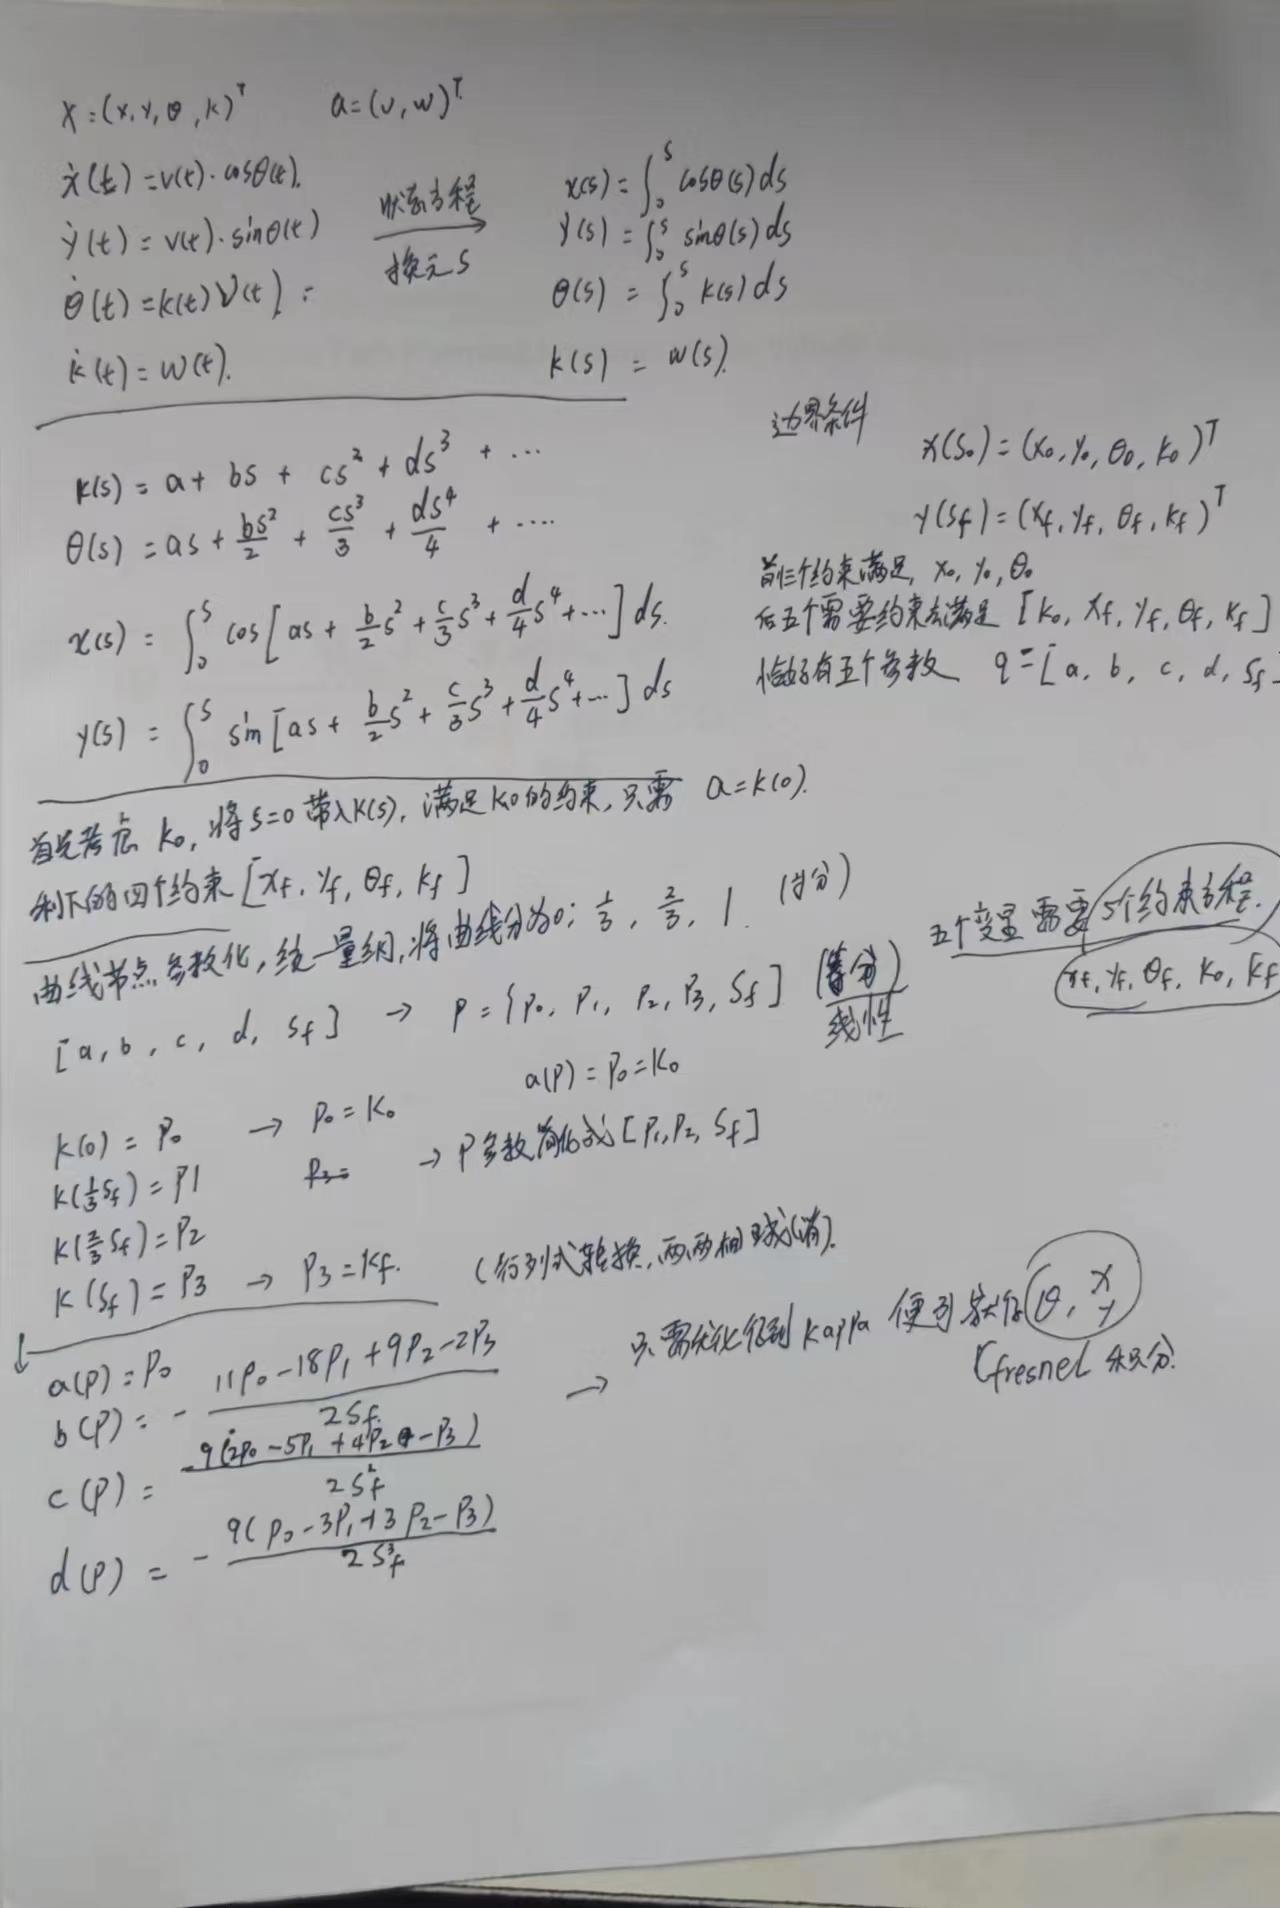 x = (x, y, θ, k)ᵀ    a = (v, w)ᵀ
ẋ(t) = v(t)·cosθ(t).
ẏ(t) = v(t)·sinθ(t)
θ̇(t) = k(t) v(t) :
k̇(t) = w(t).
状态方程
换元 S
x(s) = ∫₀ˢ cosθ(s) ds
y(s) = ∫₀ˢ sinθ(s) ds
θ(s) = ∫₀ˢ k(s) ds
k(s) = w(s).
k(s) = a + bs + cs² + ds³ + ...
θ(s) = as + bs²/2 + cs³/3 + ds⁴/4 + ....
x(s) = ∫₀ˢ cos[as + b/2 s² + c/3 s³ + d/4 s⁴ + ...] ds.
y(s) = ∫₀ˢ sin[as + b/2 s² + c/3 s³ + d/4 s⁴ + ...] ds
边界条件
x(s₀) = (x₀, y₀, θ₀, k₀)ᵀ
y(sf) = (xf, yf, θf, kf)ᵀ
前三个约束满足, x₀, y₀, θ₀
后五个需要约束去满足 [k₀, xf, yf, θf, kf]
恰好有五个参数 q = [a, b, c, d, Sf]
首先考虑 k₀, 将 s=0 带入k(s), 满足k₀的约束, 只需 a = k(0).
剩下的四个约束 [xf, yf, θf, kf]
曲线节点参数化, 统一量纲, 将曲线分为0, 1/3, 2/3, 1 (均分)
[a, b, c, d, Sf] → P = {P₀, P₁, P₂, P₃, Sf] (等分)
线性
五个变量需要5个约束方程.
xf, yf, θf, k₀, kf
a(P) = P₀ = k₀
k(0) = P₀ → P₀ = k₀
k(1/3 Sf) = P1
P₃=
→ P参数简化成 [P₁, P₂, Sf]
k(2/3 Sf) = P₂
k(Sf) = P3 → P₃ = kf.
(行列式转换, 两两相减(消).
a(P) = P₀
b(P) = - (11P₀ - 18P₁ + 9P₂ - 2P₃)/2Sf
c(P) = 9(2P₀ - 5P₁ + 4P₂ - P₃)/2Sf²
d(P) = - 9(P₀ - 3P₁ + 3P₂ - P₃)/2Sf³
→ 只需优化得到 kappa 便可求得 θ, x y
(fresnel 积分.